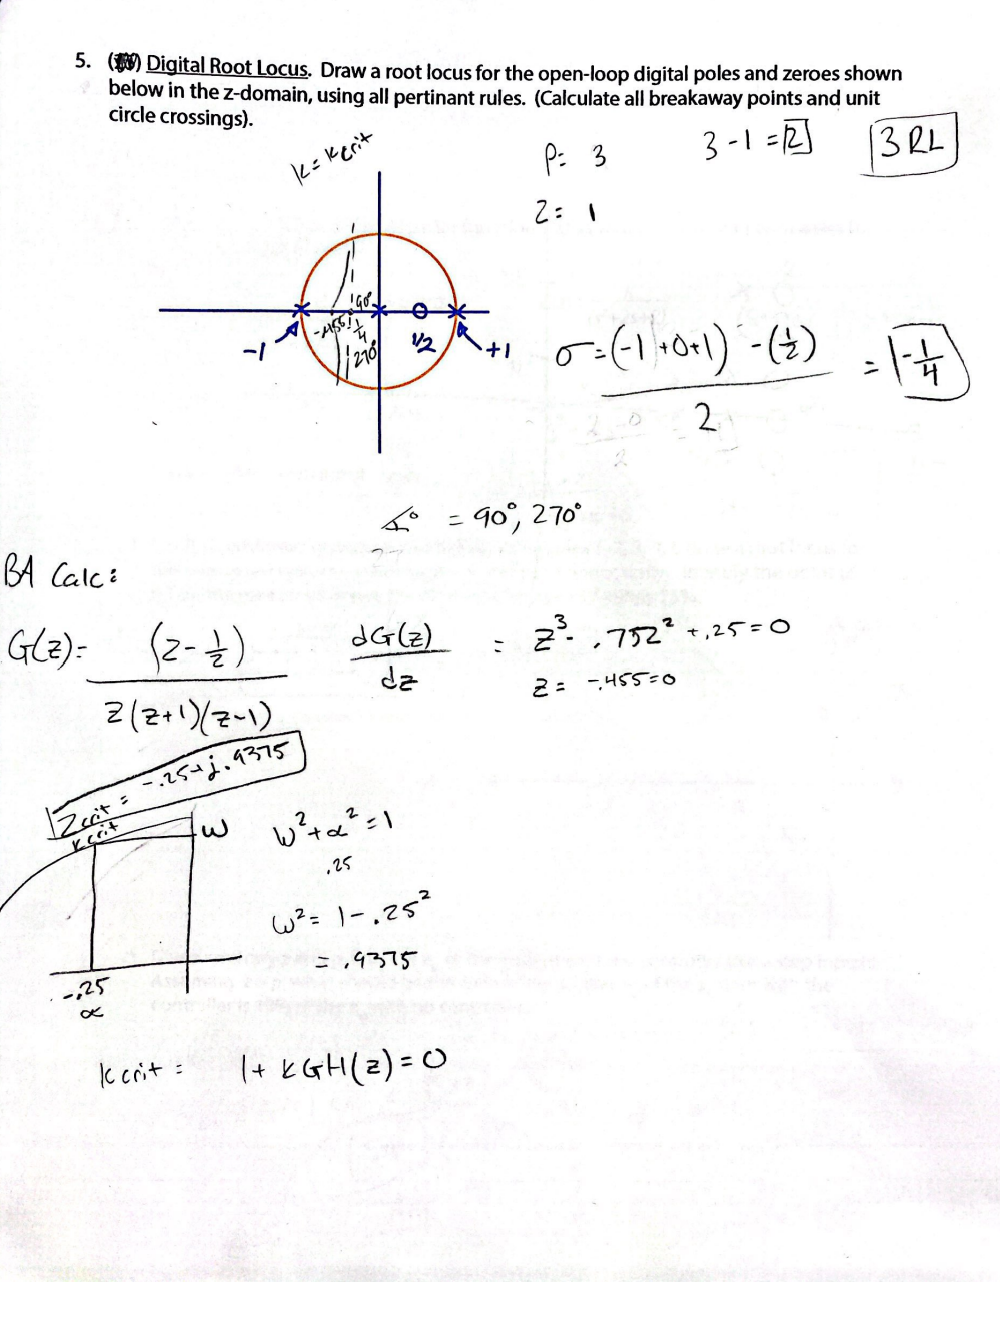 5. Digital Root Locus. Draw a root locus for the open-loop digital poles and zeroes shown
below in the z-domain, using all pertinant rules. (Calculate all breakaway points and unit
circle crossings).
K = Kcrit
P: 3
3 - 1 = 2
3 RL
Z: 1
90°
-.455
1/4
270°
-1
1/2
+1
σ = (-1 + 0 + 1) - (1/2) / 2 = -1/4
∡° = 90°, 270°
BA Calc:
G(z) = (z - 1/2) / z(z+1)(z-1)
dG(z)/dz = z³ - .75z² + .25 = 0
z = -.455 = 0
Zcrit = -.25 + j.9375
Kcrit
ω
ω² + α² = 1
.25
ω² = 1 - .25²
= .9375
-.25
α
Kcrit = 1 + KGH(z) = 0